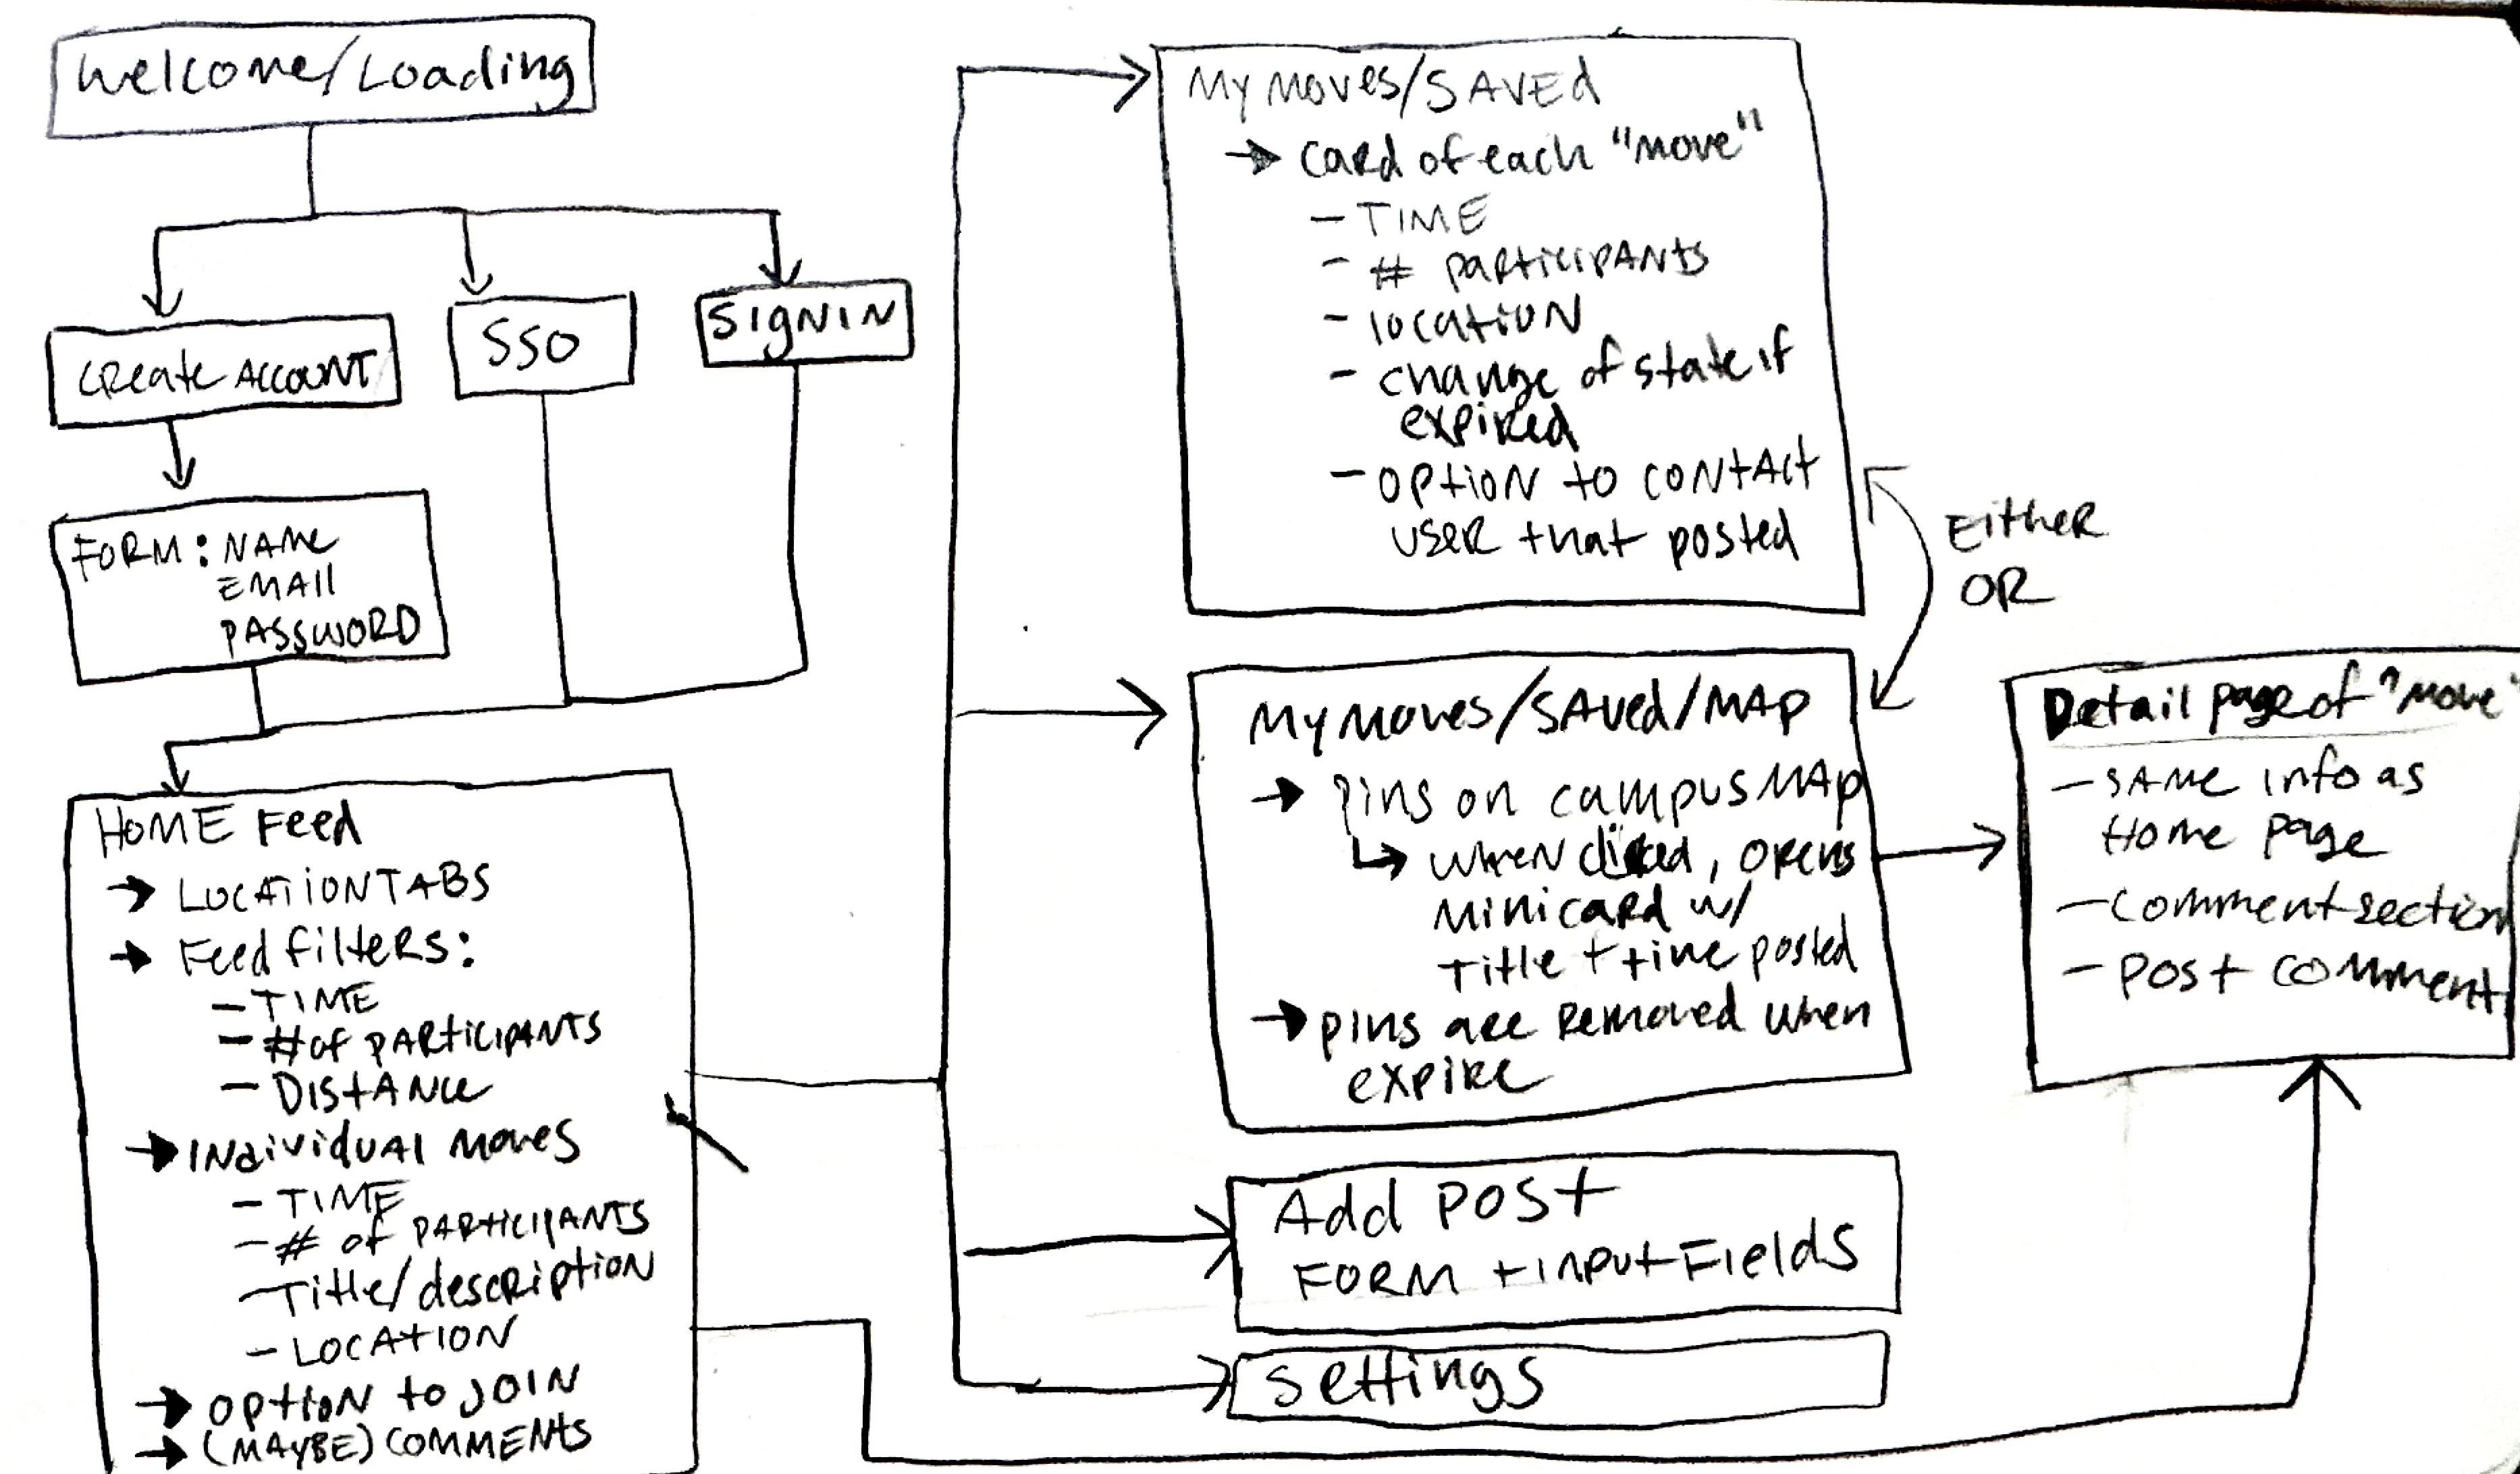 Welcome/Loading
Create Account
SSO
Sign in
Form: Name
Email
Password
Home Feed
→ Location Tabs
→ Feed filters:
- Time
- # of participants
- Distance
→ Individual moves
- Time
- # of participants
- Title/description
- Location
→ option to join
→ (Maybe) comments
My Moves/Saved
→ Card of each "move"
- Time
- # participants
- location
- change of state if
expired
- option to contact
user that posted
Either
or
My Moves/Saved/Map
→ pins on campus map
↳ when clicked, opens
minicard w/
Title + time posted
→ pins are removed when
expire
Add post
Form + input fields
settings
Detail page of "move"
- same info as
Home page
- Comment section
- post comment